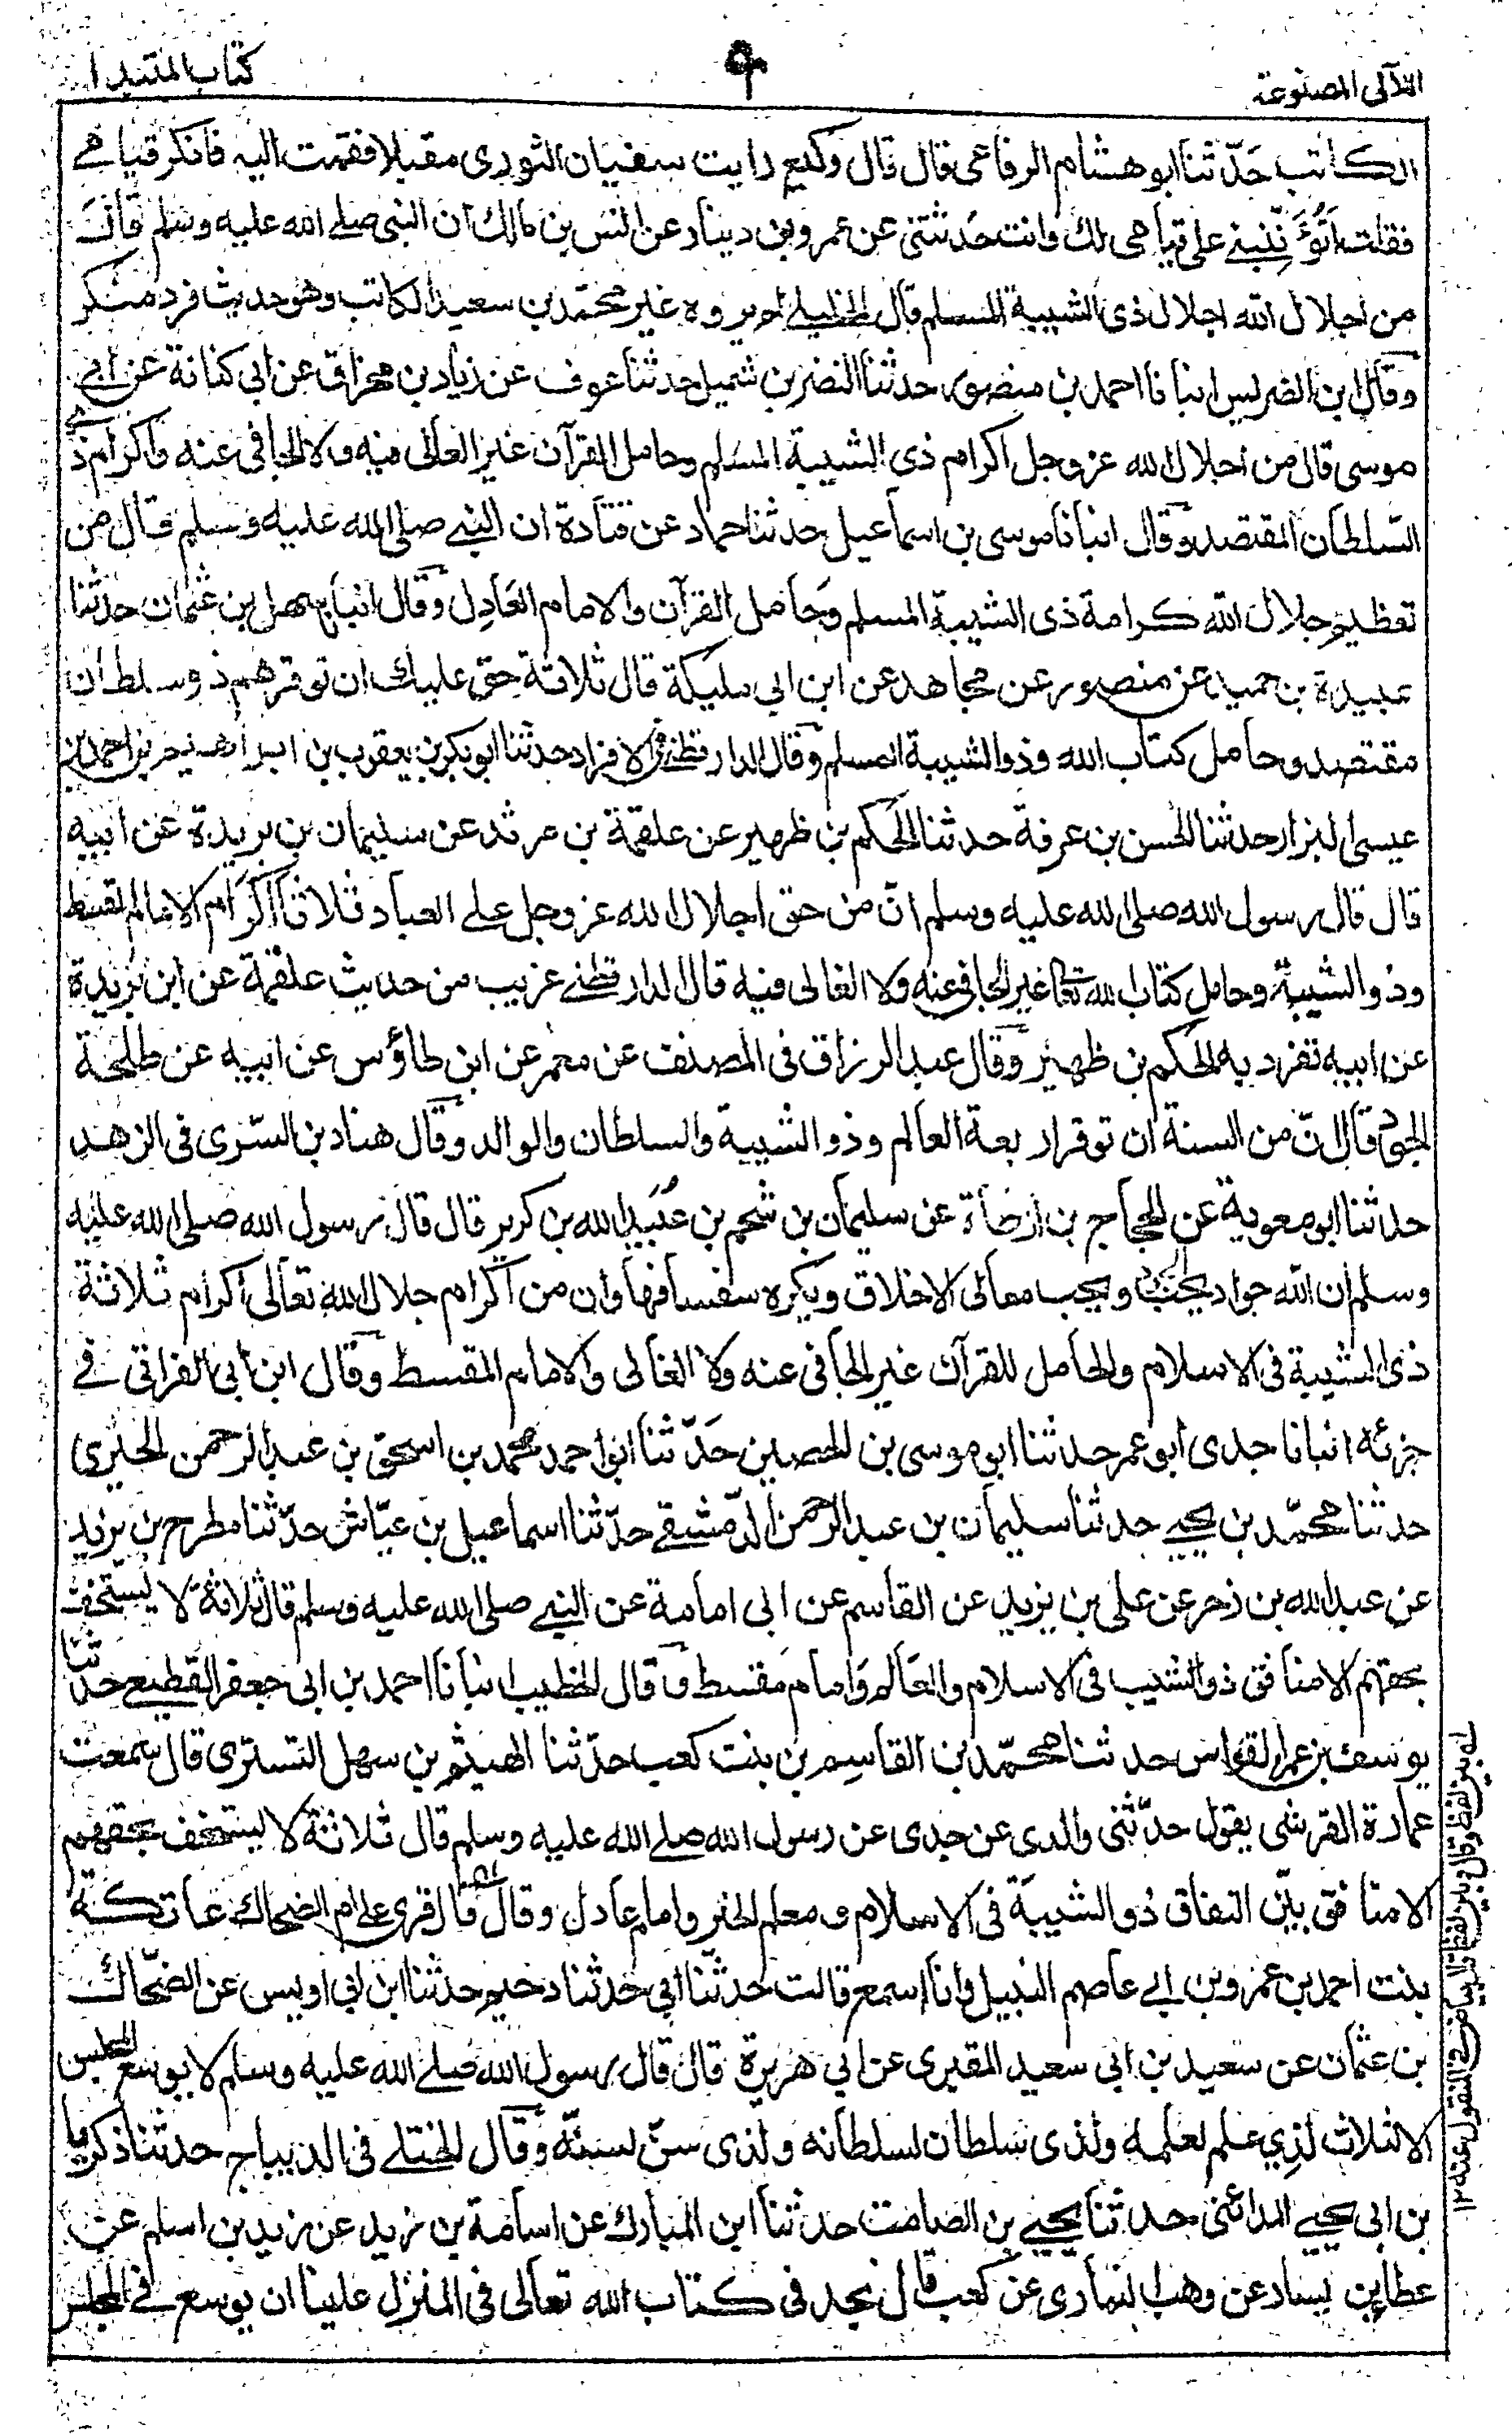 اللآلى المصنوعة
كتاب المبتدا
الكاتب حَدّثنا ابو هشام الرفاعى قال قال وكيع رايت سفيان الثورى مقبلا فقمت اليه فانكر قيامى
فقلت اتؤنّبنى على قيامى لك وانت حدثتنى عن عمرو بن دينار عن انس بن مالك ان النبى صلے الله عليه وسلم قال
من اجلال الله اجلال ذى الشيبة المسلم قال الخليلے لم يروه غير محمّد بن سعيد الكاتب وهو حديث فرد منكر
وقال ابن الضريس انبانا احمد بن منصور حدثنا النضر بن شميل حدثنا عوف عن زياد بن مخراق عن ابى كنانة عن ابى
موسى قال من اجلال الله عز وجل اكرام ذى الشيبة المسلم وحامل القرآن غير الغالى فيه ولا الجافى عنه واكرام ذى
السّلطان المقتصد وقال انبانا موسى بن اسماعيل حدثنا حماد عن قتادة ان النبے صلى الله عليه وسلم قال من
تعظيم جلال الله كرامة ذى الشيبة المسلم وحامل القرآن والامام العادل وقال انبا سهل بن عثمان حدثنا
عبيدة بن حميد عن منصور عن مجاهد عن ابن ابى مليكة قال ثلاثة حق عليك ان توقرهم ذو سلطان
مقتصد وحامل كتاب الله وذو الشيبة المسلم وقال الدارقطنى فى الافراد حدثنا ابو بكر بن يعقوب بن ابراهيم بن احمد بن
عيسى البزار حدثنا الحسن بن عرفة حدثنا الحكم بن ظهير عن علقمة بن مرثد عن سليمان بن بريدة عن ابيه
قال قال رسول الله صلى الله عليه وسلم انّ من حق اجلال الله عز وجل على العباد ثلاثا اكرام الامام المقسط
وذو الشيبة وحامل كتاب الله تعالى غير الجافى عنه ولا الغالى فيه قال الدارقطنے غريب من حديث علقمة عن ابن بريدة
عن ابيه تفرد به الحكم بن ظهير وقال عبد الرزاق فى المصنف عن معمر عن ابن طاؤس عن ابيه عن طلحة
قال انّ من السنة ان توقر اربعة العالم وذو الشيبة والسلطان والوالد وقال هناد بن السّرى فى الزهد
حدثنا ابو معوية عن الحجاج بن ارطاة عن سليمان بن شحيم بن عُبَيد الله بن كريز قال قال رسول الله صلى الله عليه
وسلم ان الله جواد يحب الجود ويحب معالى الاخلاق ويكره سفسافها وان من اكرام جلال الله تعالى اكرام ثلاثة
ذى الشيبة فى الاسلام والحامل للقرآن غير الجافى عنه ولا الغالى والامام المقسط وقال ابن ابى الفراتى فے
جزئه انبانا جدى ابو عمر حدثنا ابو موسى بن الحصين حَدّثنا ابو احمد محمد بن اسحق بن عبد الرحمن الحيرى
حدثنا محمّد بن يحيے حدثنا سليمان بن عبد الرحمن الدّمشقے حدّثنا اسماعيل بن عيّاش حدّثنا مطرح بن يزيد
عن عبد الله بن زحر عن على بن يزيد عن القاسم عن ابى امامة عن النبے صلى الله عليه وسلم قال ثلاثة لا يستخف
بحقهم الا منافق ذو الشيب فى الاسلام والعالم وامام مقسط وقال الخطيب انبانا احمد بن ابى جعفر القطيعے حدثنا
يوسف بن عمر القواس حدثنا محمّد بن القاسم بن بنت كعب حدّثنا الهيثم بن سهل التسترى قال سمعت
عمارة القرشى يقول حدّثنى والدى عن جدى عن رسول الله صلے الله عليه وسلم قال ثلاثة لا يستخف بحقهم
الا منافق بيّن النفاق ذو الشيبة فى الاسلام ومعلم الخير وامام عادل وقال قال قرى على ام الضحاك عاتكة
بنت احمد بن عمرو بن ابے عاصم النبيل وانا اسمع قالت حدثنا ابى حدثنا دحيم حدثنا ابن ابى اويس عن الضحّاك
بن عثمان عن سعيد بن ابى سعيد المقبرى عن ابى هريرة قال قال رسول الله صلے الله عليه وسلم لا يوسع المجلس
الا لثلاث لذى علم لعلمه ولذى سلطان لسلطانه ولذى سنّ لسنّه وقال الختلے فى الديباج حدثنا زكريا
بن ابى يحيے المدائنى حدثنا يحيے بن الصامت حدثنا ابن المبارك عن اسامة بن زيد عن زيد بن اسلم عن
عطا بن يسار عن وهب الذمارى عن كعب قال نجد فى كتاب الله تعالى فى المنزل علينا ان يوسع فے المجلس
بين لفظ وقال وبين لفظ قال بياض فى المنقول عنه ١٢